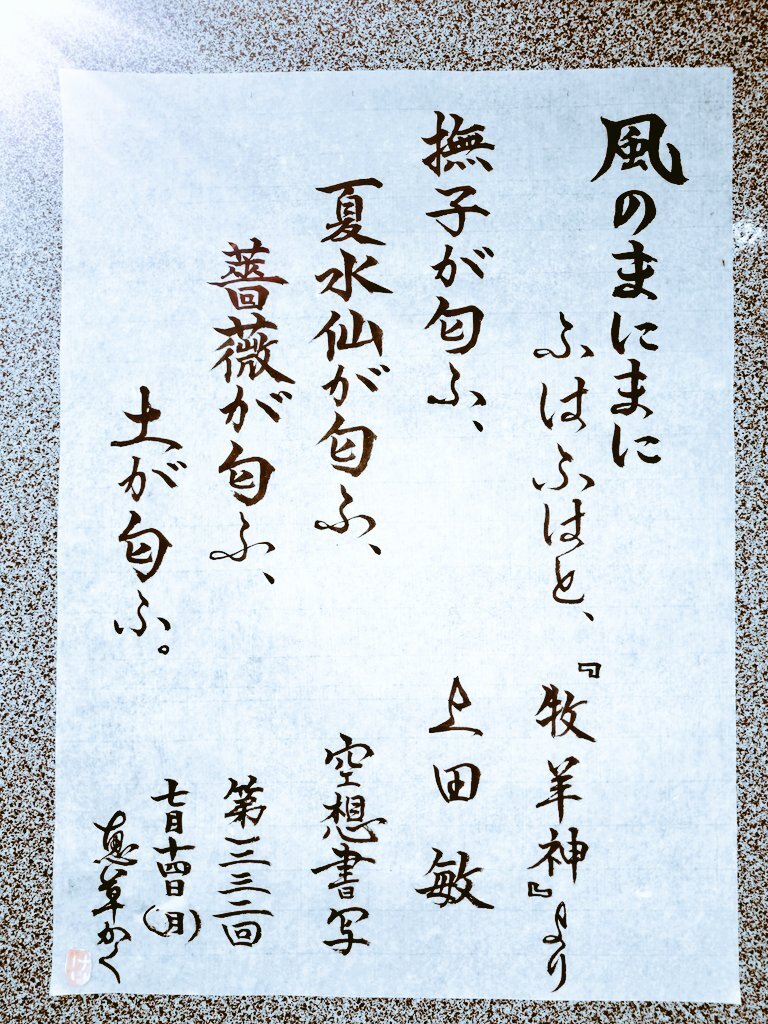 風のまにまに
ふはふはと、
撫子が匂ふ、
夏水仙が匂ふ、
薔薇が匂ふ、
土が匂ふ。
『牧羊神』より
上田敏
空想書写
第一三三二回
七月十四日(月)
恵草かく